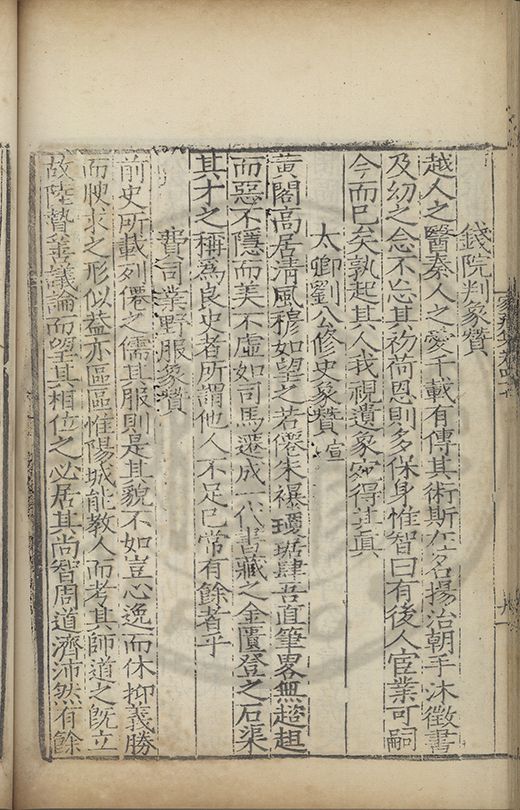 錢院判象贊
越人之醫秦人之愛千載有傳其術斯在名揚治朝手沐徵書
及幼之念不忘其初荷恩則多保身惟智曰有後人宦業可嗣
今而已矣孰起其人我視遺象宛得其眞
太卿劉公修史象贊 宣
黃閣高居淸風穆如望之若僊朱襮瓊琚肆吾直筆畧無趑趄
而惡不隱而美不虛如司馬遷成一代書藏之金匱登之石渠
其才之稱爲良史者所謂他人不足已常有餘者乎
費司業野服象贊
前史所載列僊之儒其服則是其貌不如豈心逸而休抑義勝
而腴求之形似葢亦區區惟陽城能敎人而考其師道之旣立
故陸贄善議論而望其相位之必居其尚智周道濟沛然有餘